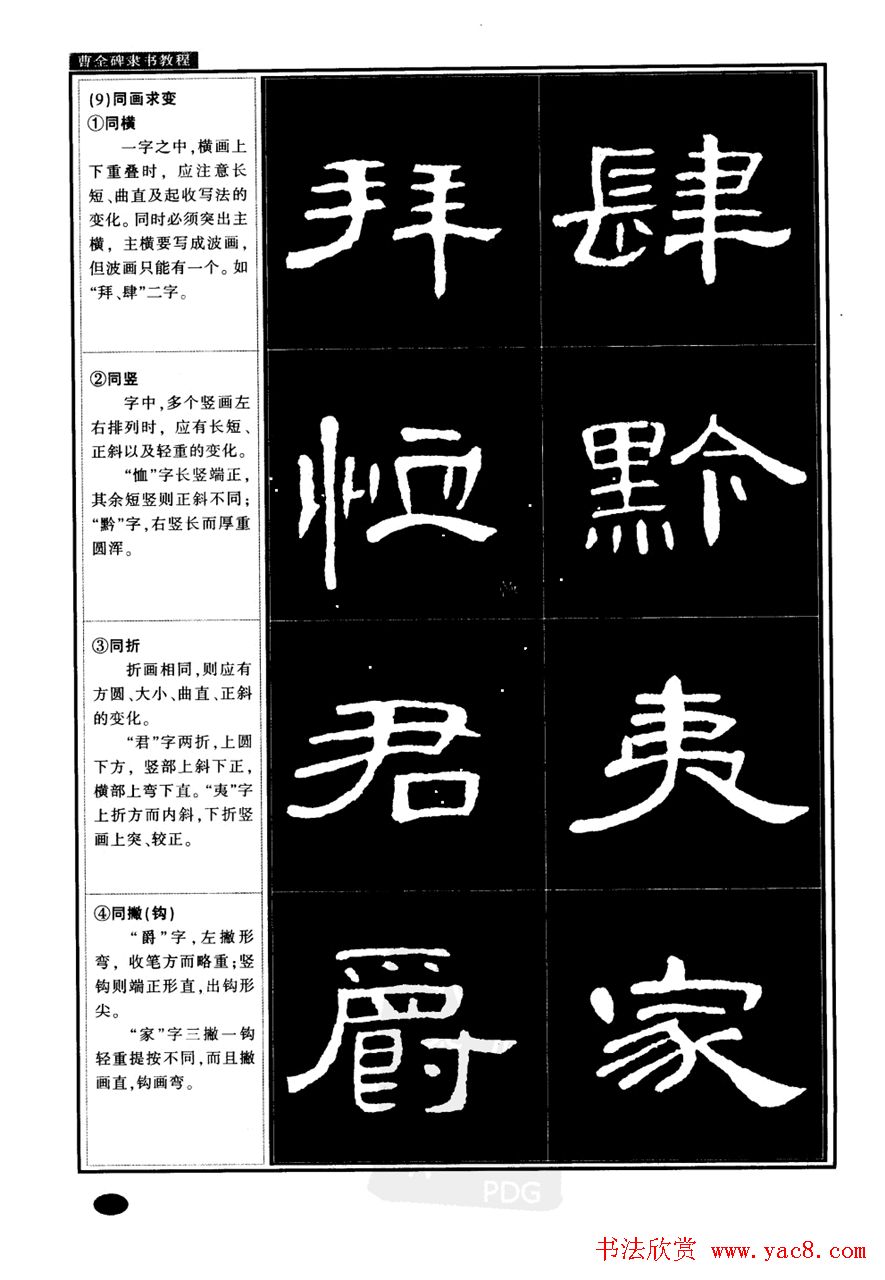 曹全碑隶书教程
(9)同画求变
①同横
一字之中,横画上
下重叠时,应注意长
短、曲直及起收写法的
变化。同时必须突出主
横,主横要写成波画,
但波画只能有一个。如
“拜、肆”二字。
拜 肆
②同竖
字中,多个竖画左
右排列时,应有长短、
正斜以及轻重的变化。
“恤”字长竖端正,
其余短竖则正斜不同;
“黔”字,右竖长而厚重
圆浑。
恤 黔
③同折
折画相同,则应有
方圆、大小、曲直、正斜
的变化。
“君”字两折,上圆
下方,竖部上斜下正,
横部上弯下直。“夷”字
上折方而内斜,下折竖
画上突、较正。
君 夷
④同撇(钩)
“爵”字,左撇形
弯,收笔方而略重;竖
钩则端正形直,出钩形
尖。
“家”字三撇一钩
轻重提按不同,而且撇
画直,钩画弯。
爵 家
PDG
书法欣赏 www.yac8.com